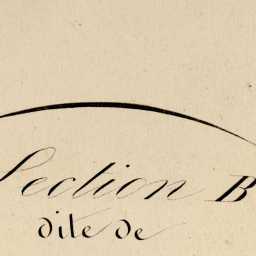 Section B
dite de